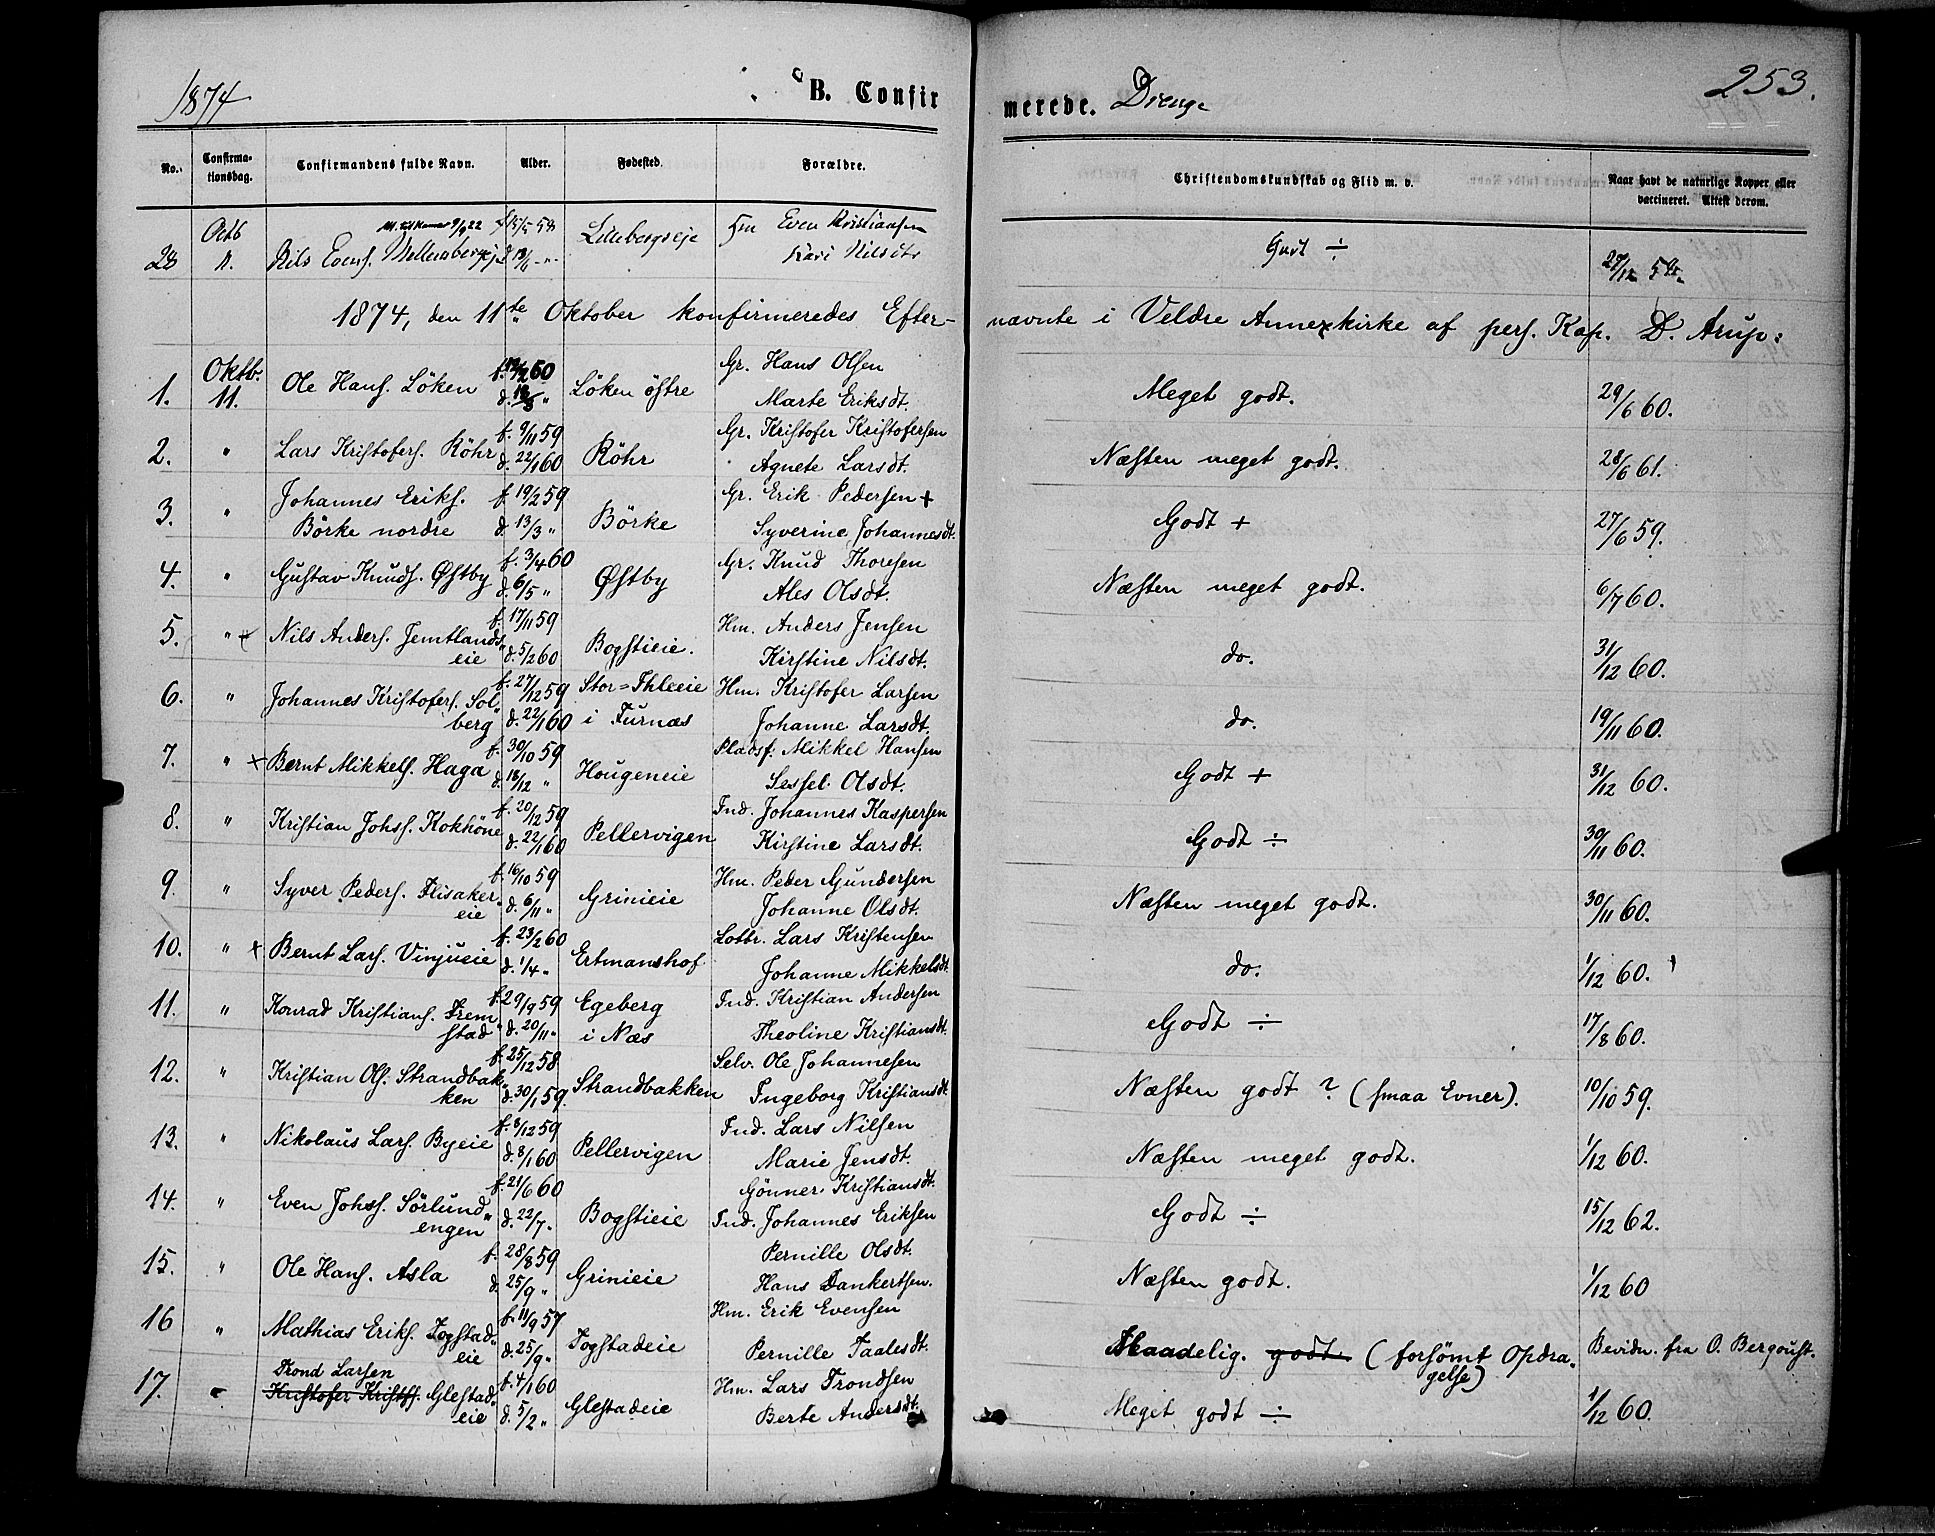 1874
B. Confirmerede. Drenge
253.
No. Confirmationsdag. Confirmandens fulde Navn. Alder. Fødested. Forældre. Christendomskundskab og Flid m. v. Naar havt de naturlige Kopper eller vaccineret. Attest derom.
28 Octb 11. Nils Evens. f. 15/5 58 Lillebergseje Even Kristiansen Kari Nilsdtr Godt ÷ 27/12 58.
1874, den 11te Oktober konfirmeredes Efternævnte i Veldre Annexkirke af pers. Kap. D. Arup:
1. Oktb. 11. Ole Hans. Löken 60 Löken östre Gr. Hans Olsen Marte Eriksdt. Meget godt. 29/6 60.
2. " Lars Kristofers. Röhr f. 9/11 59 d. 22/1 60 Röhr Gr. Kristofer Kristofersen Agnete Larsdt. Næsten meget godt. 28/6 61.
3. " Johannes Eriks. Börke nordre f. 19/2 59 d. 13/3 " Börke Gr. Erik Pedersen + Syverine Johannesdt. Godt + 27/6 59.
4. " Gustav Knuds. Østby f. 3/4 60 d. 6/5 " Østby Gr. Knud Thoresen Ales Olsdt. Næsten meget godt. 6/7 60.
5. " + Nils Anders. Jemtlandseie f. 17/11 59 d. 5/2 60 Bogstieie. Hm. Anders Jensen Kirstine Nilsdt. do. 31/12 60.
6. " Johannes Kristofers. Solberg f. 27/12 59 d. 22/1 60 Stor=Ihleeie i Furnæs Hm. Kristofer Larsen Johanne Larsdt. do. 19/11 60.
7. " + Bernt Mikkels. Haga f. 30/10 59 d. 18/12 " Hougeneie Pladsf. Mikkel Hansen Sessel Olsdt. Godt + 31/12 60.
8. " Kristian Johss. Kokhöne f. 20/12 59 d. 22/1 60 Pellervigen Ind. Johannes Kaspersen Kirstine Larsdt. Godt ÷ 30/11 60.
9. " Syver Peders. Flisakereie f. 16/10 59 d. 6/11 " Grinieie Hm. Peder Gundersen Johanne Olsdt. Næsten meget godt. 30/11 60.
10. " + Bernt Lars. Vinjueie f. 23/2 60 d. 1/4 " Ertmanshof Lottr. Lars Kristensen Johanne Mikkelsdt. do. 1/12 60.
11. " Konrad Kristians. Fremstad f. 29/9 59 d. 20/11 " Egeberg i Næs Ind. Kristian Andersen Theoline Kristiansdt. Godt ÷ 17/8 60.
12. " Kristian Ols. Strandbakken f. 25/12 58 d. 30/1 59. Strandbakken Selv. Ole Johannesen Ingeborg Kristiansdt. Næsten godt ? (smaa Evner). 10/10 59.
13. " Nikolaus Lars. Byeie f. 8/12 59 d. 8/1 60 Pellervigen Ind. Lars Nilsen Marie Jensdt. Næsten meget godt. 1/12 60.
14. " Even Johss. Sörlundengen f. 21/6 60 d. 22/7 " Bogstieie Gönner Kristiansdt. Ind. Johannes Eriksen Godt ÷ 15/12 62.
15. " Ole Hans. Asla f. 28/8 59 d. 25/9 " Grinieie Pernille Olsdt. Hans Dankertsen. Næsten godt. 1/12 60
16 " Mathias Eriks. Togstadeie f. 11/9 57 d. 25/9 " Togstadeie Hm. Erik Evensen Pernille Taalesdt. Maadelig. godt (forsömt Opdragelse) Bevidn. fra O. Berqoust.
17. " Trond Larsen Kristofer Kristff. Glestadeie f. 4/1 60 d. 5/2 " Glestadeie Hm. Lars Trondsen Berte Andersdt. Meget godt ÷ 1/12 60.